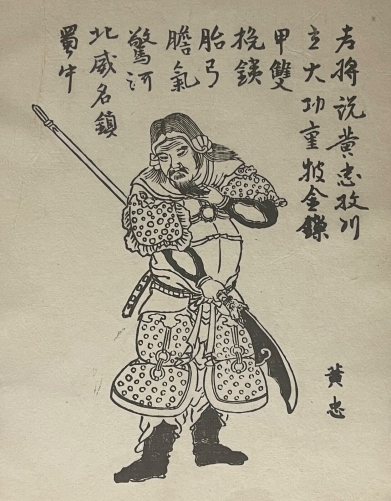 老將説黃忠收川
立大功重披金鏁
甲雙
挽銕
胎弓
膽氣
驚河
北威名鎮
蜀中
黃忠